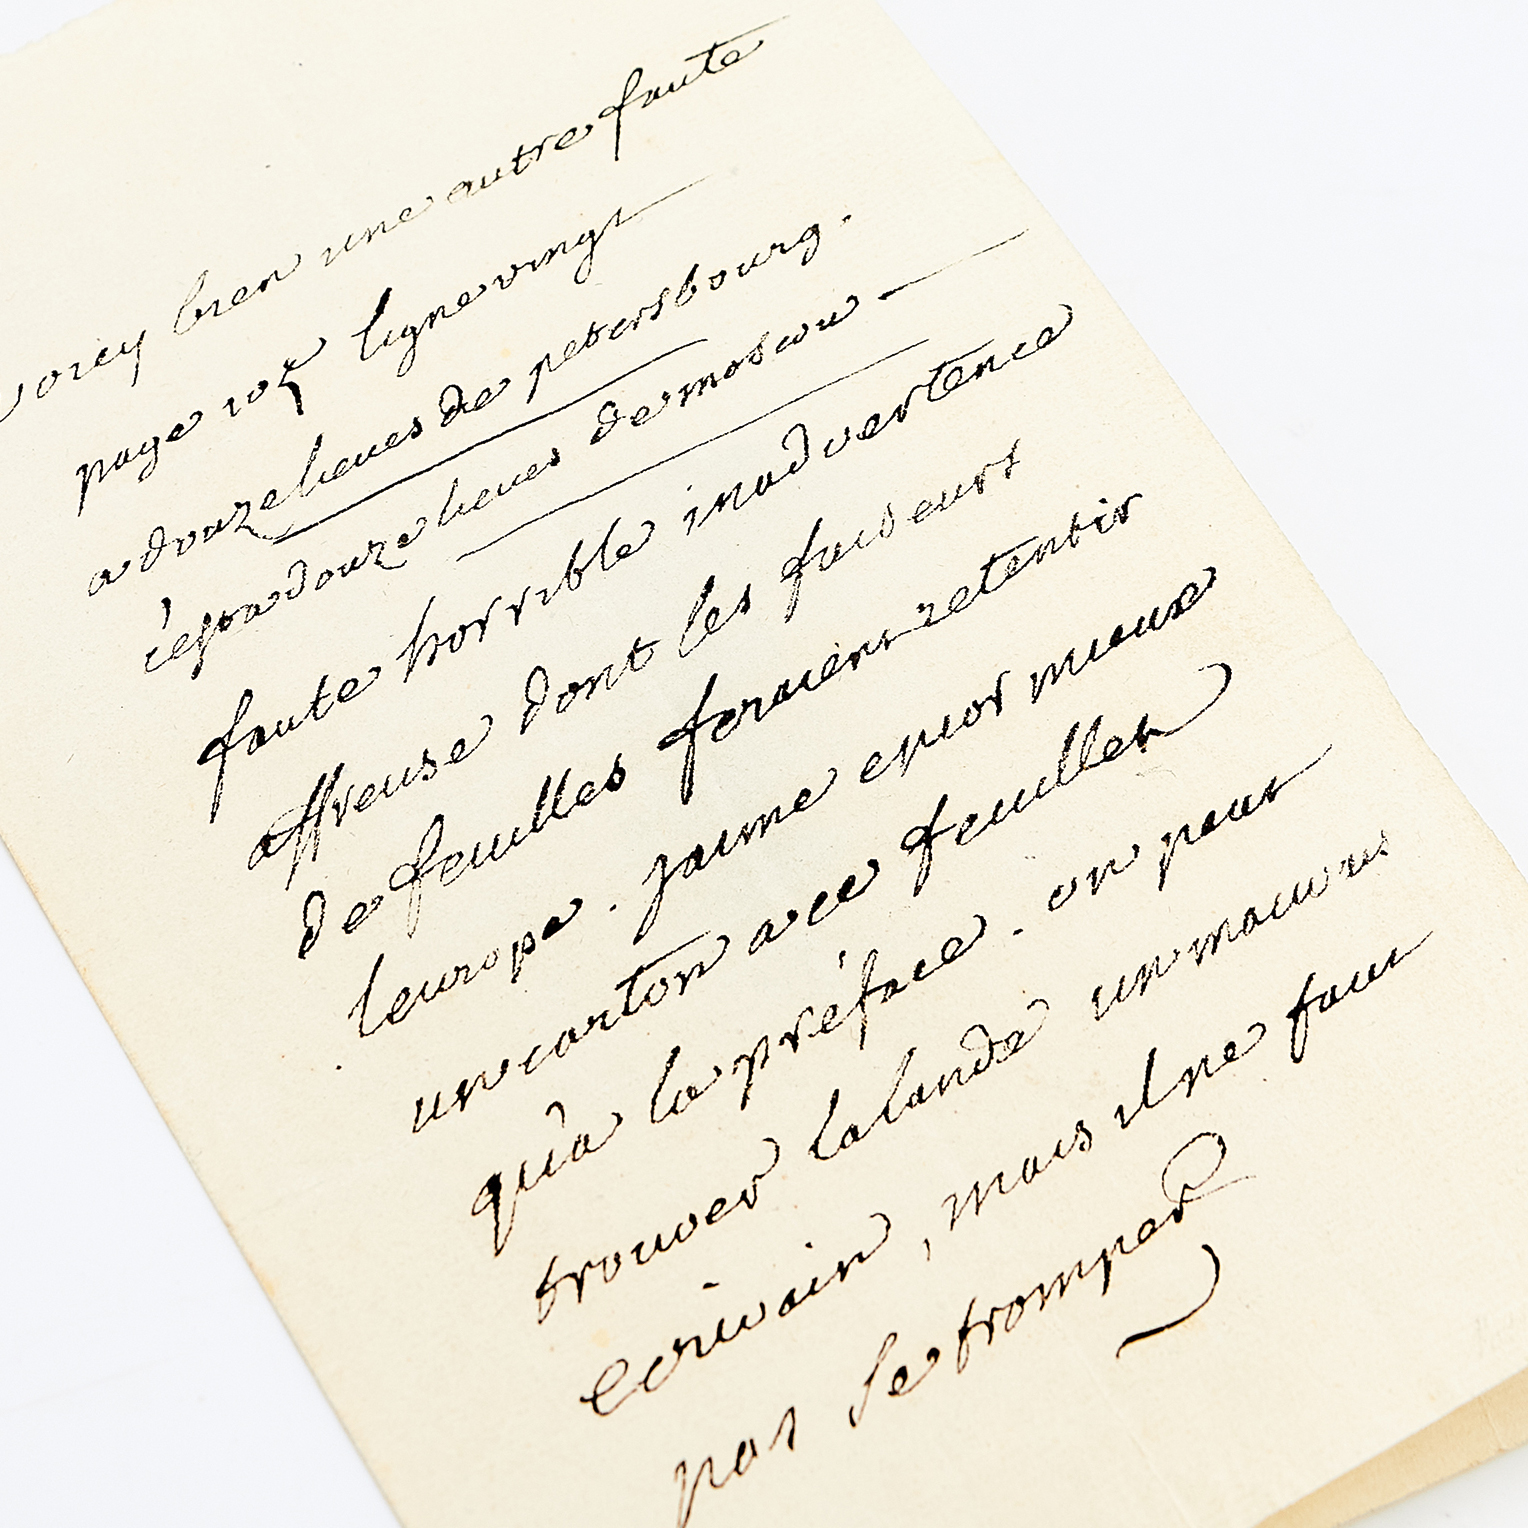 voicy bien une autre faute
page 105 ligne vingt
a douze lieues de petersbourg.
c'est a douze lieues de moscou
faute horrible inadvertence
affreuse dont les faiseurs
de feuilles feraient retentir
leurope. jaime encor mieux
un carton a ce feuillet
qu'a la préface. on peut
trouver lalande un mauvais
ecrivain, mais il ne faut
pas se tromper